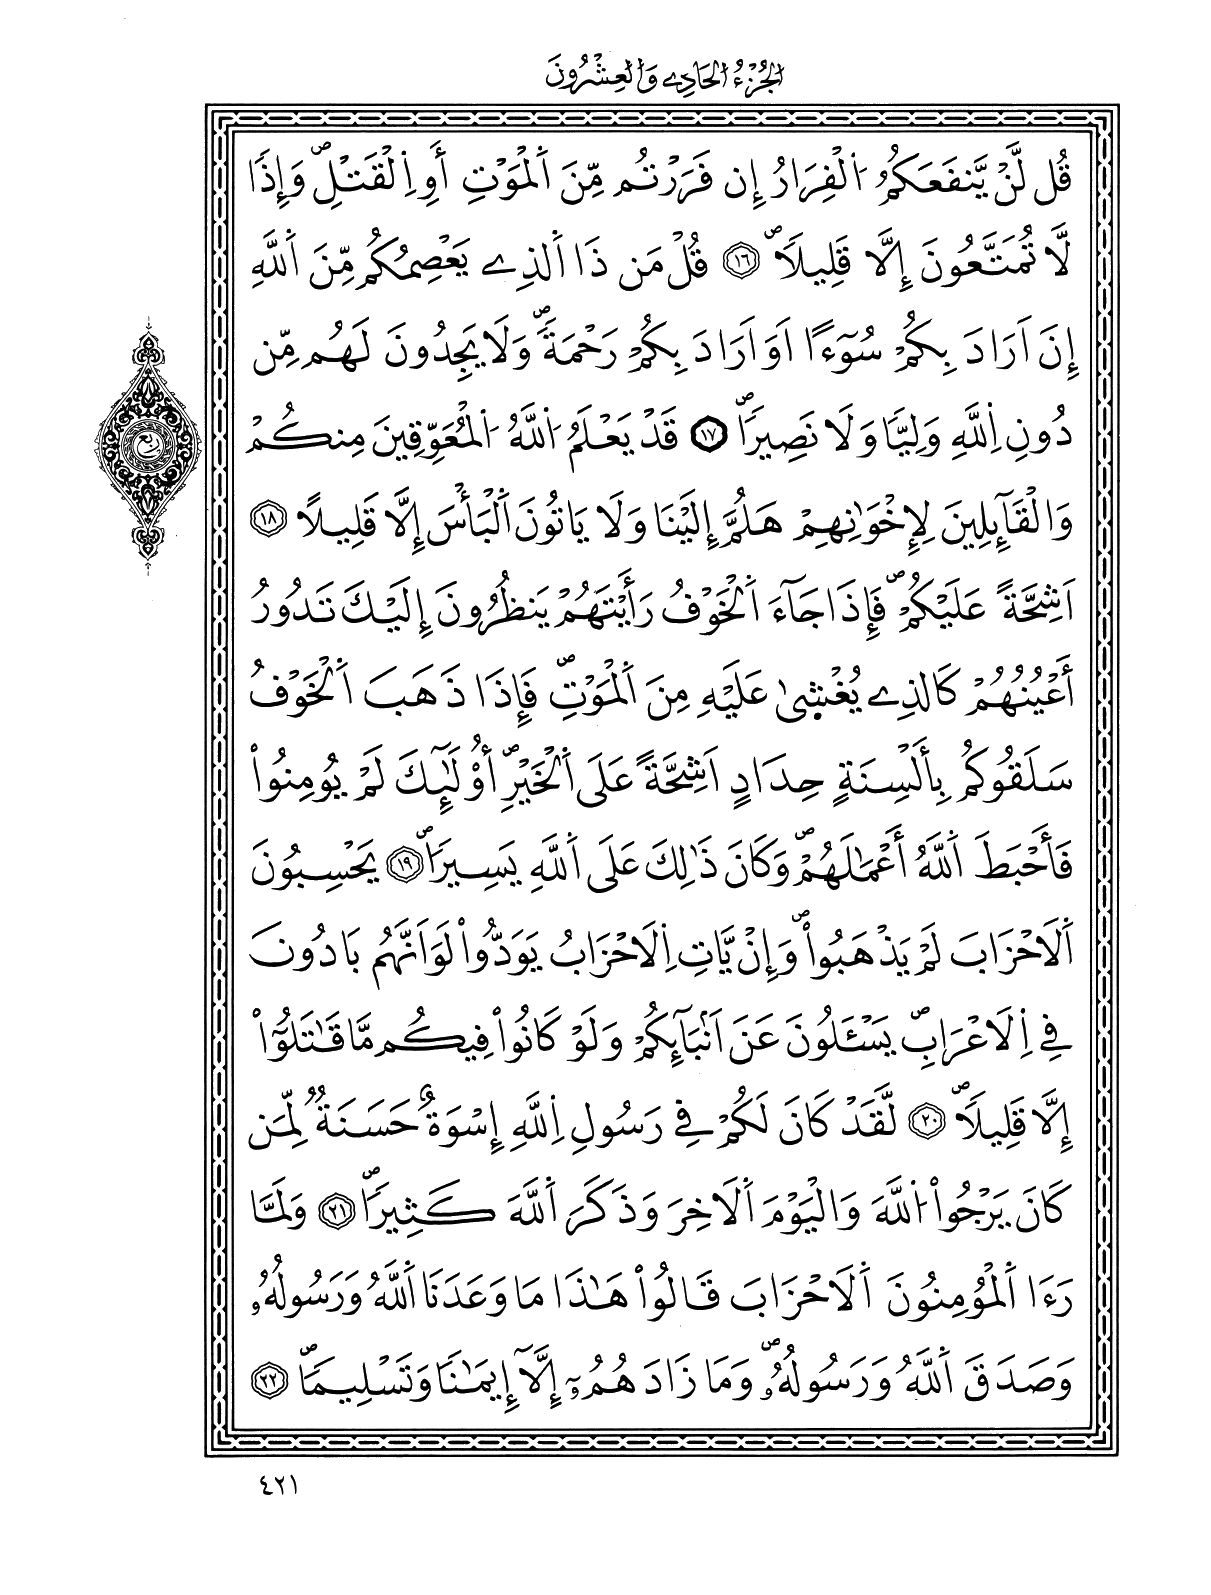 الجُزْءُ الحَادِے وَالعِشْرُونَ
قُل لَّنْ يَّنفَعَكُمُ اُ۬لْفِرَارُ إِن فَرَرْتُم مِّنَ اَ۬لْمَوْتِ أَوِ اِ۬لْقَتْلِۖ وَإِذاٗ
لَّا تُمَتَّعُونَ إِلَّا قَلِيلاٗۖ ١٦ قُلْ مَن ذَا اَ۬لذِے يَعْصِمُكُم مِّنَ اَ۬للَّهِ
إِنَ اَرَادَ بِكُمْ سُوٓءاً اَوَ اَرَادَ بِكُمْ رَحْمَةٗۖ وَلَا يَجِدُونَ لَهُم مِّن
دُونِ اِ۬للَّهِ وَلِيّاٗ وَلَا نَصِيراٗۖ ١٧ قَدْ يَعْلَمُ اُ۬للَّهُ اُ۬لْمُعَوِّقِينَ مِنكُمْ
وَالْقَآئِلِينَ لِإِخْوَٰنِهِمْ هَلُمَّ إِلَيْنَا وَلَا يَاتُونَ اَ۬لْبَأْسَ إِلَّا قَلِيلاً ١٨
اَشِحَّةً عَلَيْكُمْۖ فَإِذَا جَآءَ اَ۬لْخَوْفُ رَأَيْتَهُمْ يَنظُرُونَ إِلَيْكَ تَدُورُ
أَعْيُنُهُمْ كَالذِے يُغْش۪يٰ عَلَيْهِ مِنَ اَ۬لْمَوْتِۖ فَإِذَا ذَهَبَ اَ۬لْخَوْفُ
سَلَقُوكُم بِأَلْسِنَةٍ حِدَادٍ اَشِحَّةً عَلَى اَ۬لْخَيْرِۖ أُوْلَٰٓئِكَ لَمْ يُومِنُواْ
فَأَحْبَطَ اَ۬للَّهُ أَعْمَٰلَهُمْۖ وَكَانَ ذَٰلِكَ عَلَى اَ۬للَّهِ يَسِيراٗۖ ١٩ يَحْسِبُونَ
اَ۬لَاحْزَابَ لَمْ يَذْهَبُواْۖ وَإِنْ يَّاتِ اِ۬لَاحْزَابُ يَوَدُّواْ لَوَ اَنَّهُم بَادُونَ
فِے اِ۬لَاعْرَابِۖ يَسْـَٔلُونَ عَنَ اَنۢبَآئِكُمْ وَلَوْ كَانُواْ فِيكُم مَّا قَٰتَلُوٓاْ
إِلَّا قَلِيلاٗۖ ٢٠ لَّقَدْ كَانَ لَكُمْ فِے رَسُولِ اِ۬للَّهِ إِسْوَةٌ حَسَنَةٞ لِّمَن
كَانَ يَرْجُواْ اُ۬للَّهَ وَالْيَوْمَ اَ۬لَاخِرَ وَذَكَرَ اَ۬للَّهَ كَثِيراٗۖ ٢١ وَلَمَّا
رَءَا اَ۬لْمُؤْمِنُونَ اَ۬لَاحْزَابَ قَالُواْ هَٰذَا مَا وَعَدَنَا اَ۬للَّهُ وَرَسُولُهُۥ
وَصَدَقَ اَ۬للَّهُ وَرَسُولُهُۥۖ وَمَا زَادَهُمُۥٓ إِلَّآ إِيمَٰناٗ وَتَسْلِيماٗۖ ٢٢
ربع
٤٢١